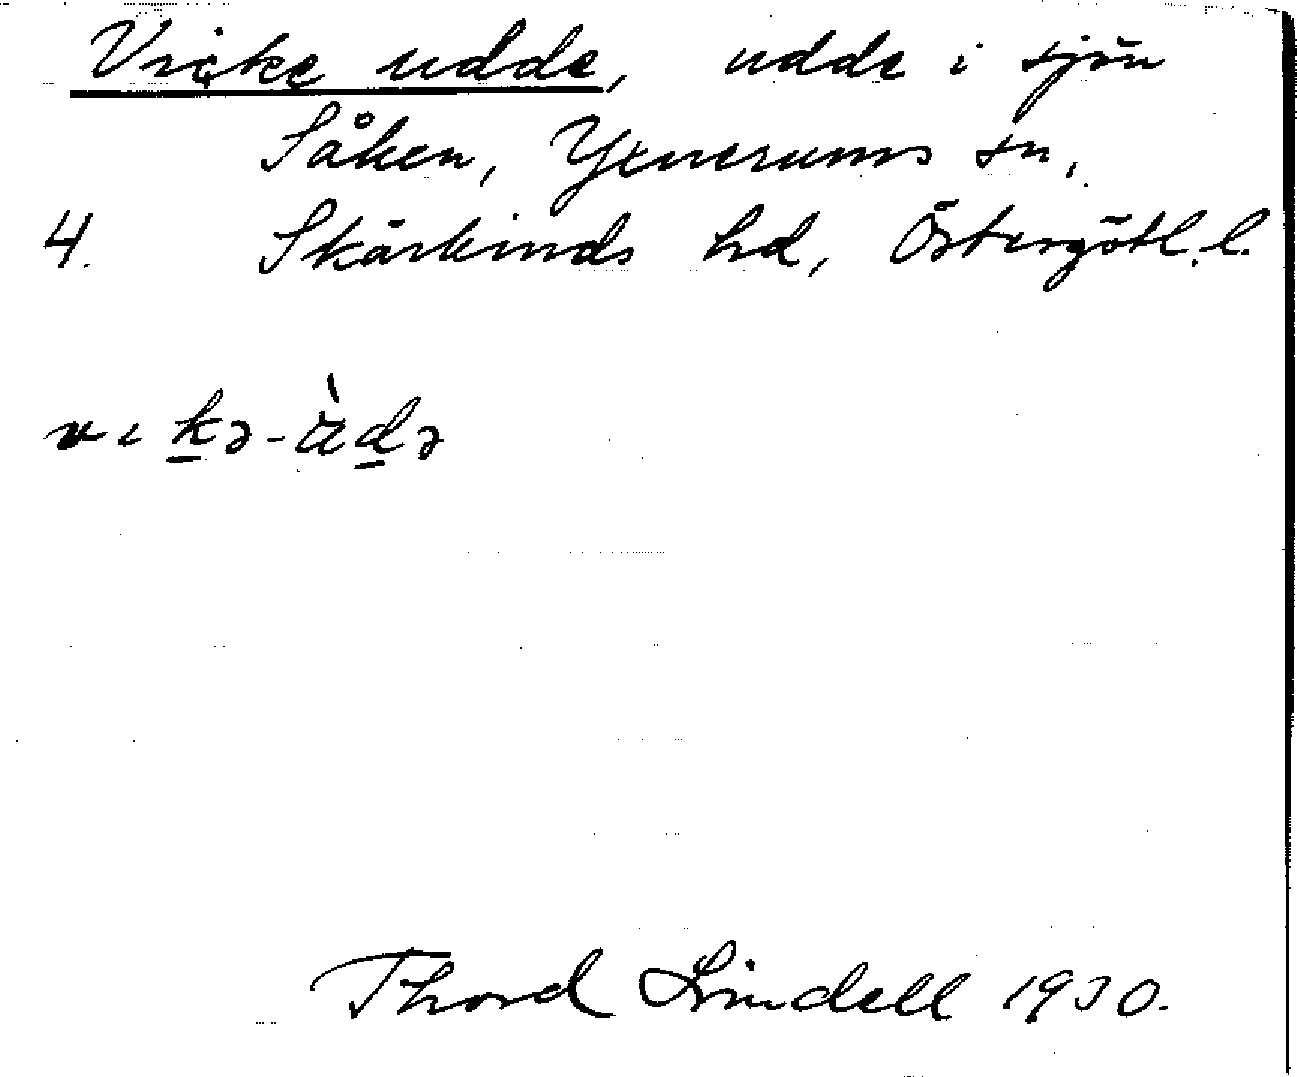 Vicke udde, udde i sjön
Såken, Yxnerums sn,
4. Skärkinds hd, Östergötl. l.
vɩk̠ə-àd̠ə
Thord Lindell 1930.